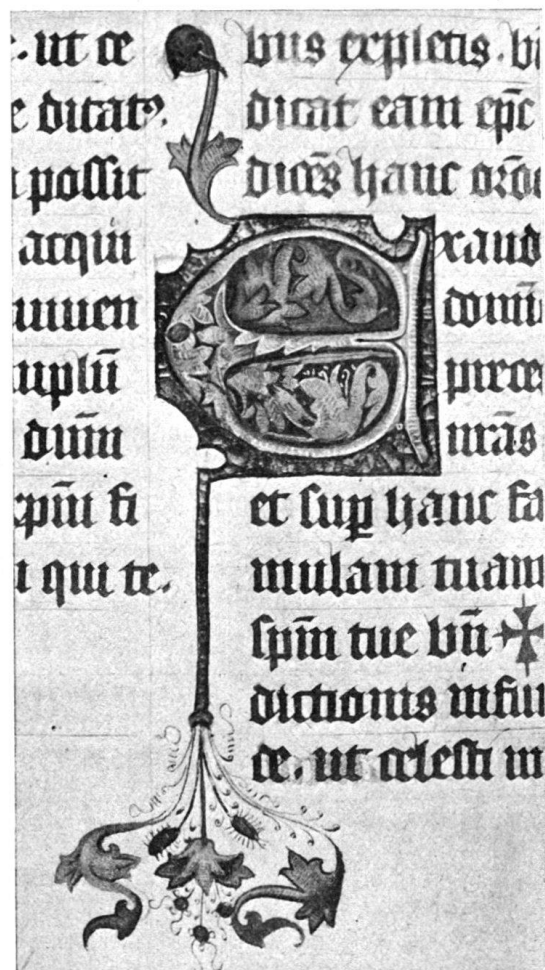 . ut ce
e dicatꝰ.
possit
acqui
iuuen
uplū
dūm
xp̄m fi
qui te.
bus expletis. bn
dicat eam ep̄c
dicēs hanc orōe
Exaud
domi
prece
nr̄as
et suꝑ hanc fa
mulam tuam
sp̄m tue bn̄ ✠
dictionis infun
de. ut celesti m